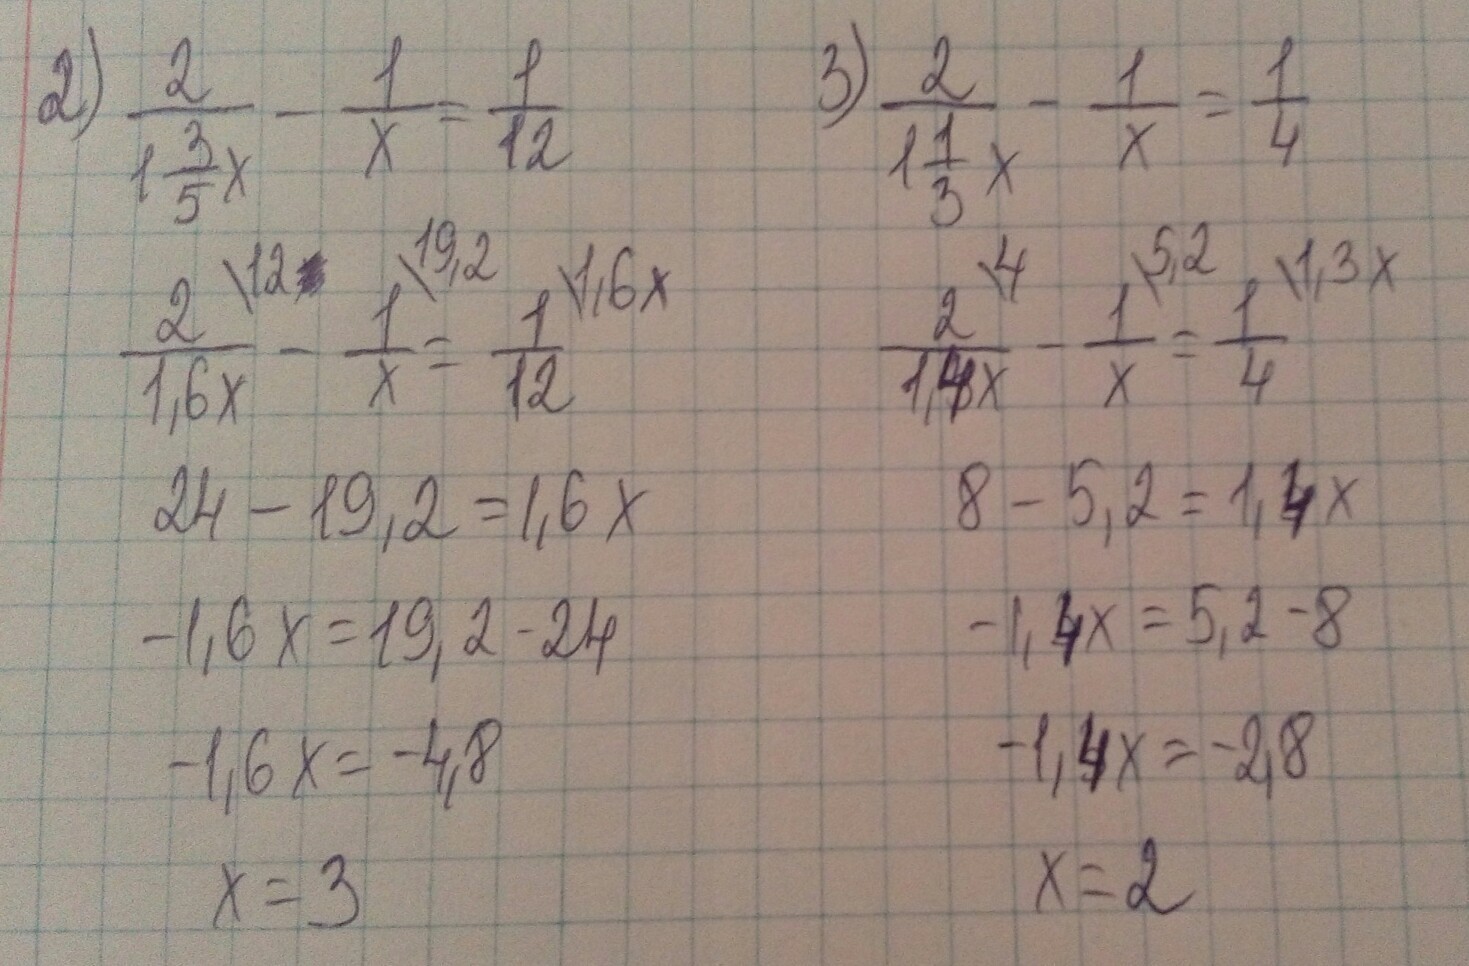 2) 2/(1 3/5 x) - 1/x = 1/12
2\12/1,6x - 1\19,2/x = 1\1,6x/12
24 - 19,2 = 1,6x
-1,6x = 19,2 - 24
-1,6x = -4,8
x = 3
3) 2/(1 1/3 x) - 1/x = 1/4
2\4/1,4x - 1\5,2/x = 1\1,3x/4
8 - 5,2 = 1,4x
-1,4x = 5,2 - 8
-1,4x = -2,8
x = 2